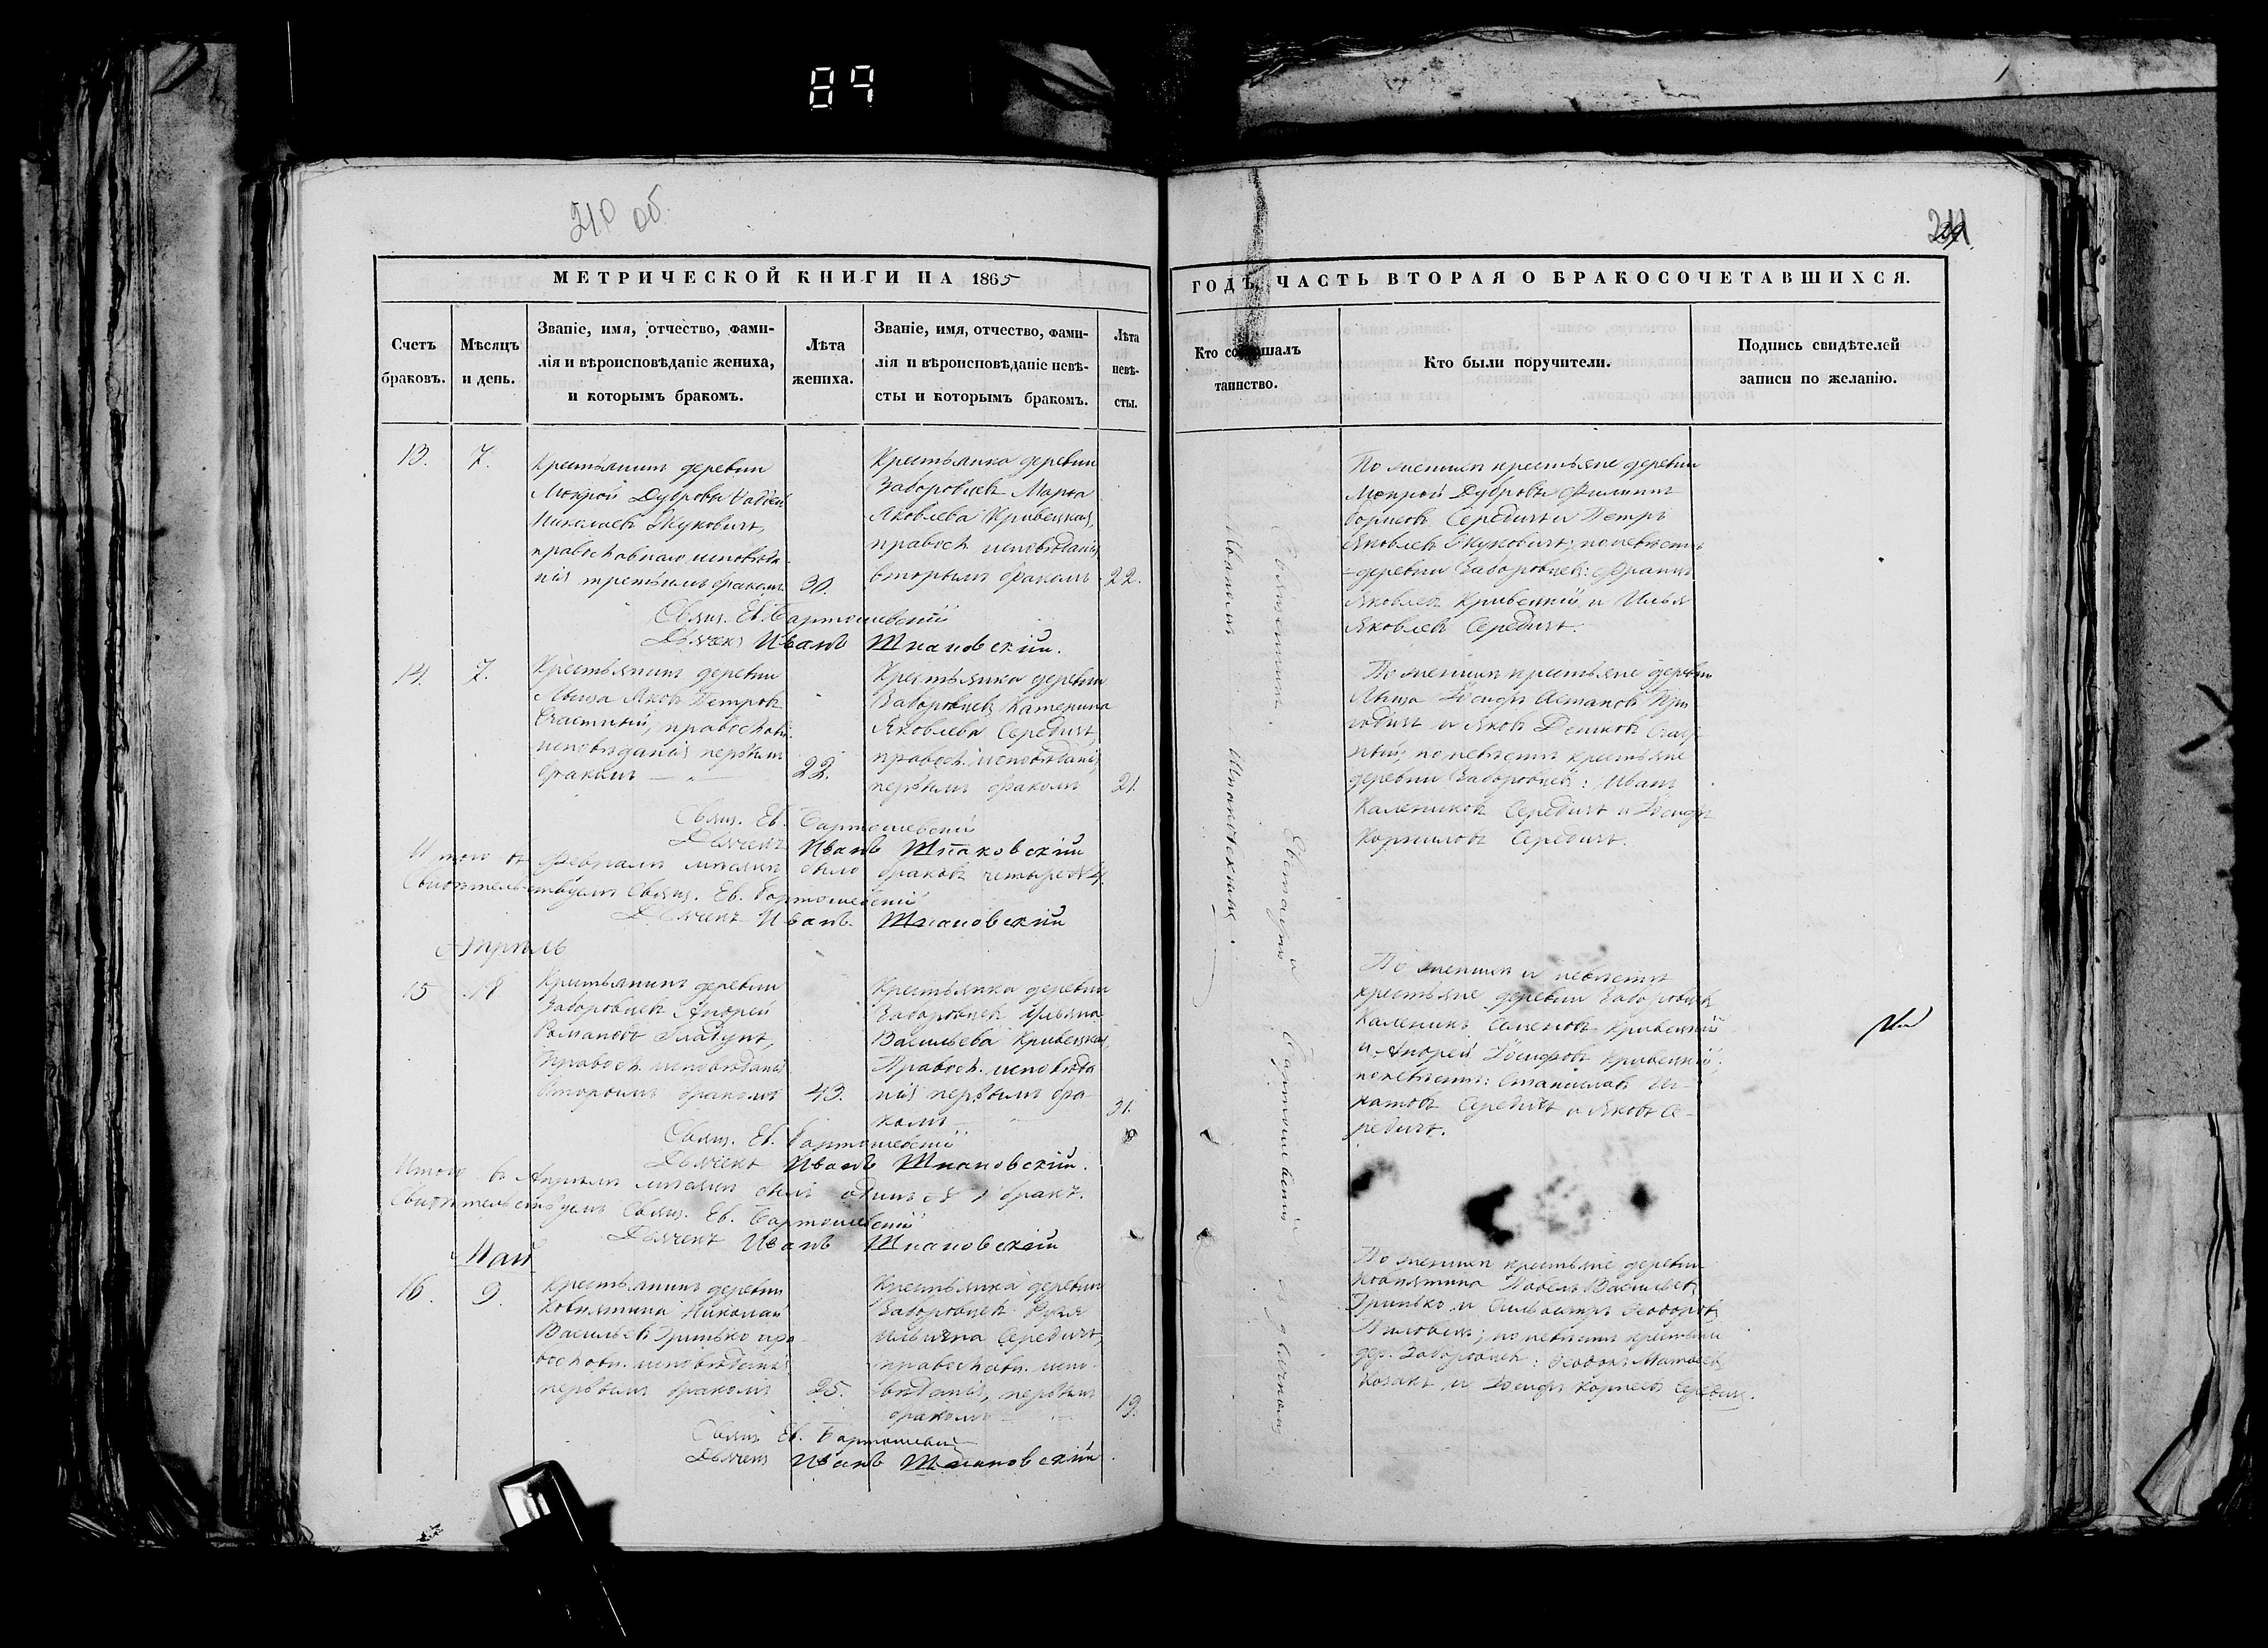 89
210 об.
211
МЕТРИЧЕСКОЙ КНИГИ НА 1865
ГОДЪ, ЧАСТЬ ВТОРАЯ О БРАКОСОЧЕТАВШИХСЯ.
Счетъ
браковъ.
Мѣсяцъ
и день.
Званіе, имя, отчество, фами-
лія и вѣроисповѣданіе жениха,
и которымъ бракомъ.
Лѣта
жениха.
Званіе, имя, отчество, фами-
лія и вѣроисповѣданіе невѣ-
сты и которымъ бракомъ.
Лѣта
невѣ-
сты.
Кто совершалъ
таинство.
Кто были поручители.
Подпись свидѣтелей
записи по желанію.
13.
7.
Крестьянинъ деревни
Мокрой Дубровы Фаддей
Николаевъ Жуковичъ,
православнаго исповѣда-
нія третьимъ бракомъ
30.
Крестьянка деревни
Заборовцевъ Марья
Яковлева Кривецкая,
правосл. исповѣданія
вторымъ бракомъ
22.
По женихѣ крестьяне деревни
Мокрой Дубровы Филиппъ
Борисовъ Середичъ и Петръ
Яковлевъ Жуковичъ; по невѣстѣ
деревни Заборовцевъ: Францъ
Яковлевъ Кривецкій и Илья
Яковлевъ Середичъ.
Свящ. Ев. Бартошевскій
Дьячекъ Иванъ Шпаковскій.
14.
7.
Крестьянинъ деревни
Лыща Яковъ Петровъ
Счастный, православ.
исповѣданія первымъ
бракомъ — " —
22.
Крестьянка деревни
Заборовцевъ Катерина
Яковлева Середичъ,
правосл. исповѣданія,
первымъ бракомъ
21.
По женихѣ крестьяне деревни
Лыща Іосифъ
и Яковъ
по невѣстѣ крестьяне
деревни Заборовцевъ: Иванъ
Калениковъ Середичъ и Іосифъ
Корниловъ Середичъ.
Свящ. Ев. Бартошевскій
Дьячекъ Иванъ Шпаковскій
Итого въ Февралѣ мѣсяцѣ было браковъ четыре 4.
Свидѣтельствуемъ Свящ. Ев. Бартошевскій
Дьячекъ Иванъ Шпаковскій
Апрѣль
15
18
Крестьянинъ деревни
Заборовцевъ Андрей
Романовъ Гладунъ,
правосл. исповѣданія
вторымъ бракомъ
43.
Крестьянка деревни
Заборовцевъ Ульяна
Васильева Кривецкая,
Правосл. исповѣда
нія первымъ бра-
комъ
31.
По женихѣ и невѣстѣ
крестьяне деревни Заборовцевъ
Каленикъ Семеновъ Кривецкій
и Андрей Іосифовъ Кривецкій
по невѣстѣ: Станиславъ Иг-
натовъ Середичъ и Яковъ Се-
редичъ.
Свящ. Ев. Бартошевскій
Дьячекъ Иванъ Шпаковскій.
Итого въ Апрѣлѣ мѣсяцѣ былъ одинъ 1 бракъ.
Свидѣтельствуемъ Свящ. Ев. Бартошевскій
Дьячекъ Иванъ Шпаковскій
Май
16.
9.
Крестьянинъ деревни
Ковнятина Николай
Васильевъ Гринько пра-
восславн. исповѣданія
первымъ бракомъ
25.
Крестьянка деревни
Заборовцевъ
Ильична Середичъ,
православн. испо-
вѣданія, первымъ
бракомъ
19.
По женихѣ крестьяне деревни
Ковнятина Павелъ Васильевъ
Гринько и Сильвестръ Ѳеодоровъ
по невѣстѣ крестьяне
дер. Заборовцевъ: Ѳеодоръ Матвѣевъ
Козакъ и Іосифъ Корнеевъ Середичъ.
Свящ. Ев. Бартошевскій
Дьячекъ Иванъ Шпаковскій
Священникъ Евстафій Бартошевскій съ дьячкомъ
Иваномъ Шпаковскимъ.